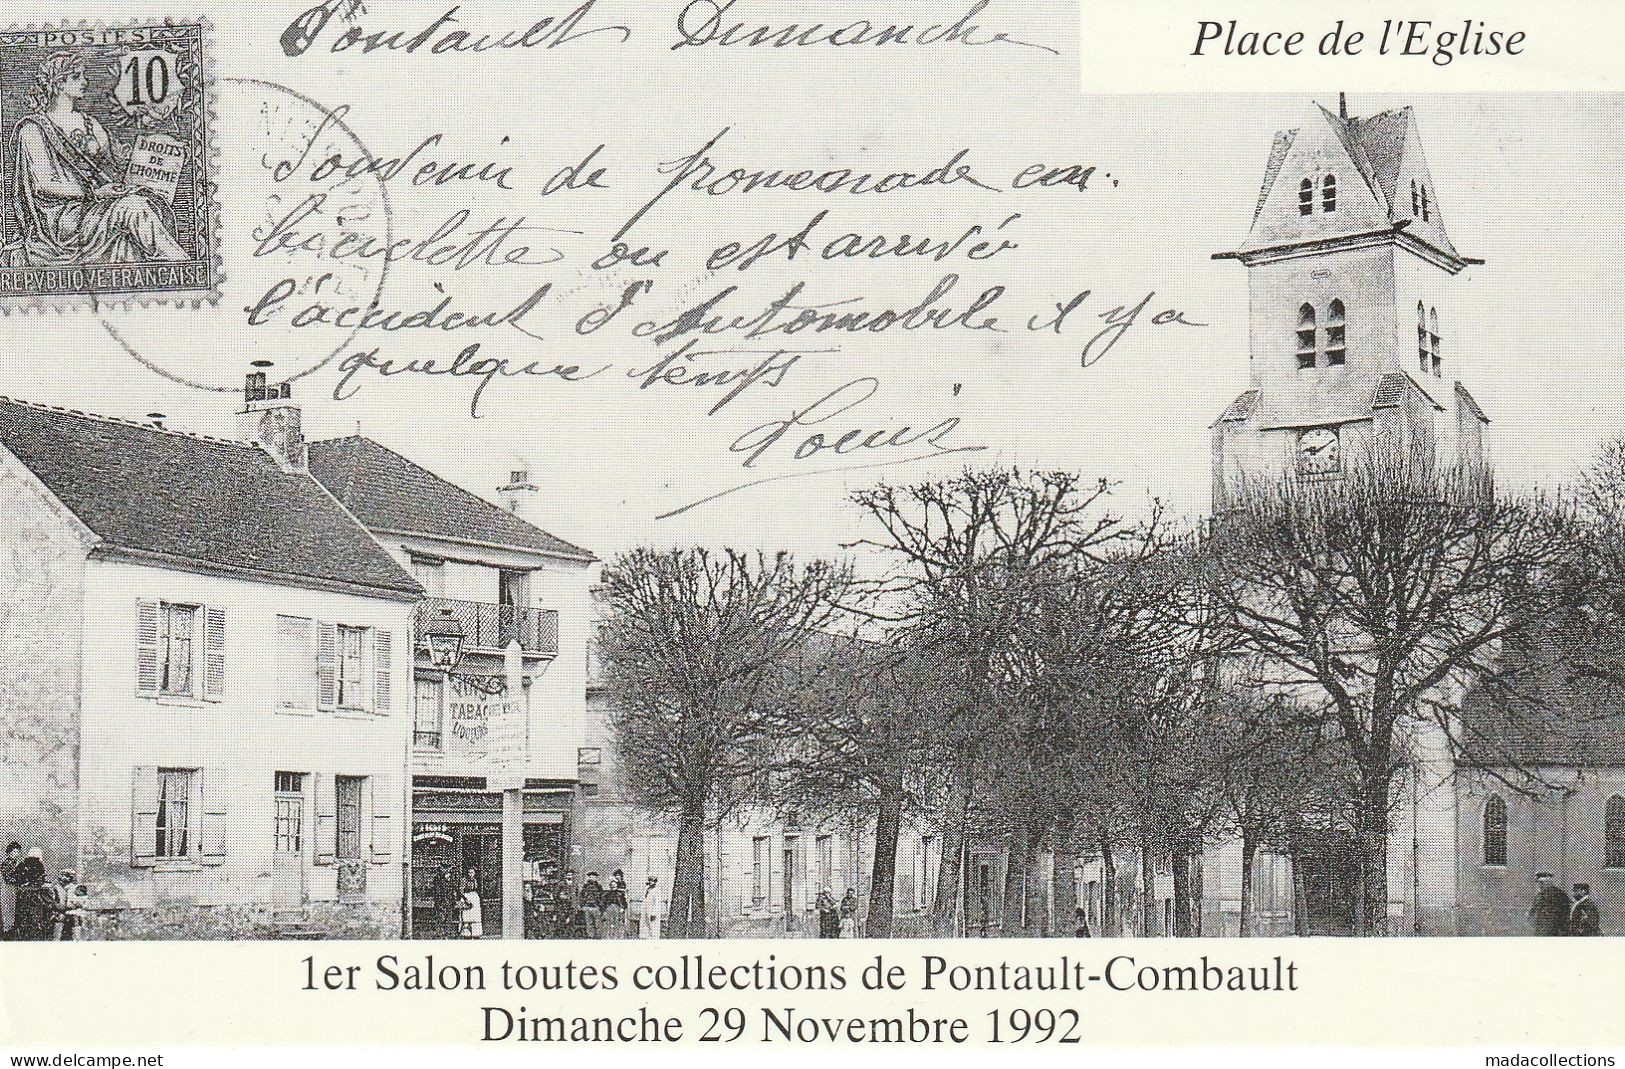 Place de l'Eglise
POSTES
10
DROITS
DE
L'HOMME
REPVBLIQVE FRANÇAISE
Pontault Dimanche
Souvenir de promenade en
bicyclette ou est arrivé
l'accident d'Automobile il y a
quelque temps
Louis
TABAC
LIQUEURS
1er Salon toutes collections de Pontault-Combault
Dimanche 29 Novembre 1992
www.delcampe.net
madacollections